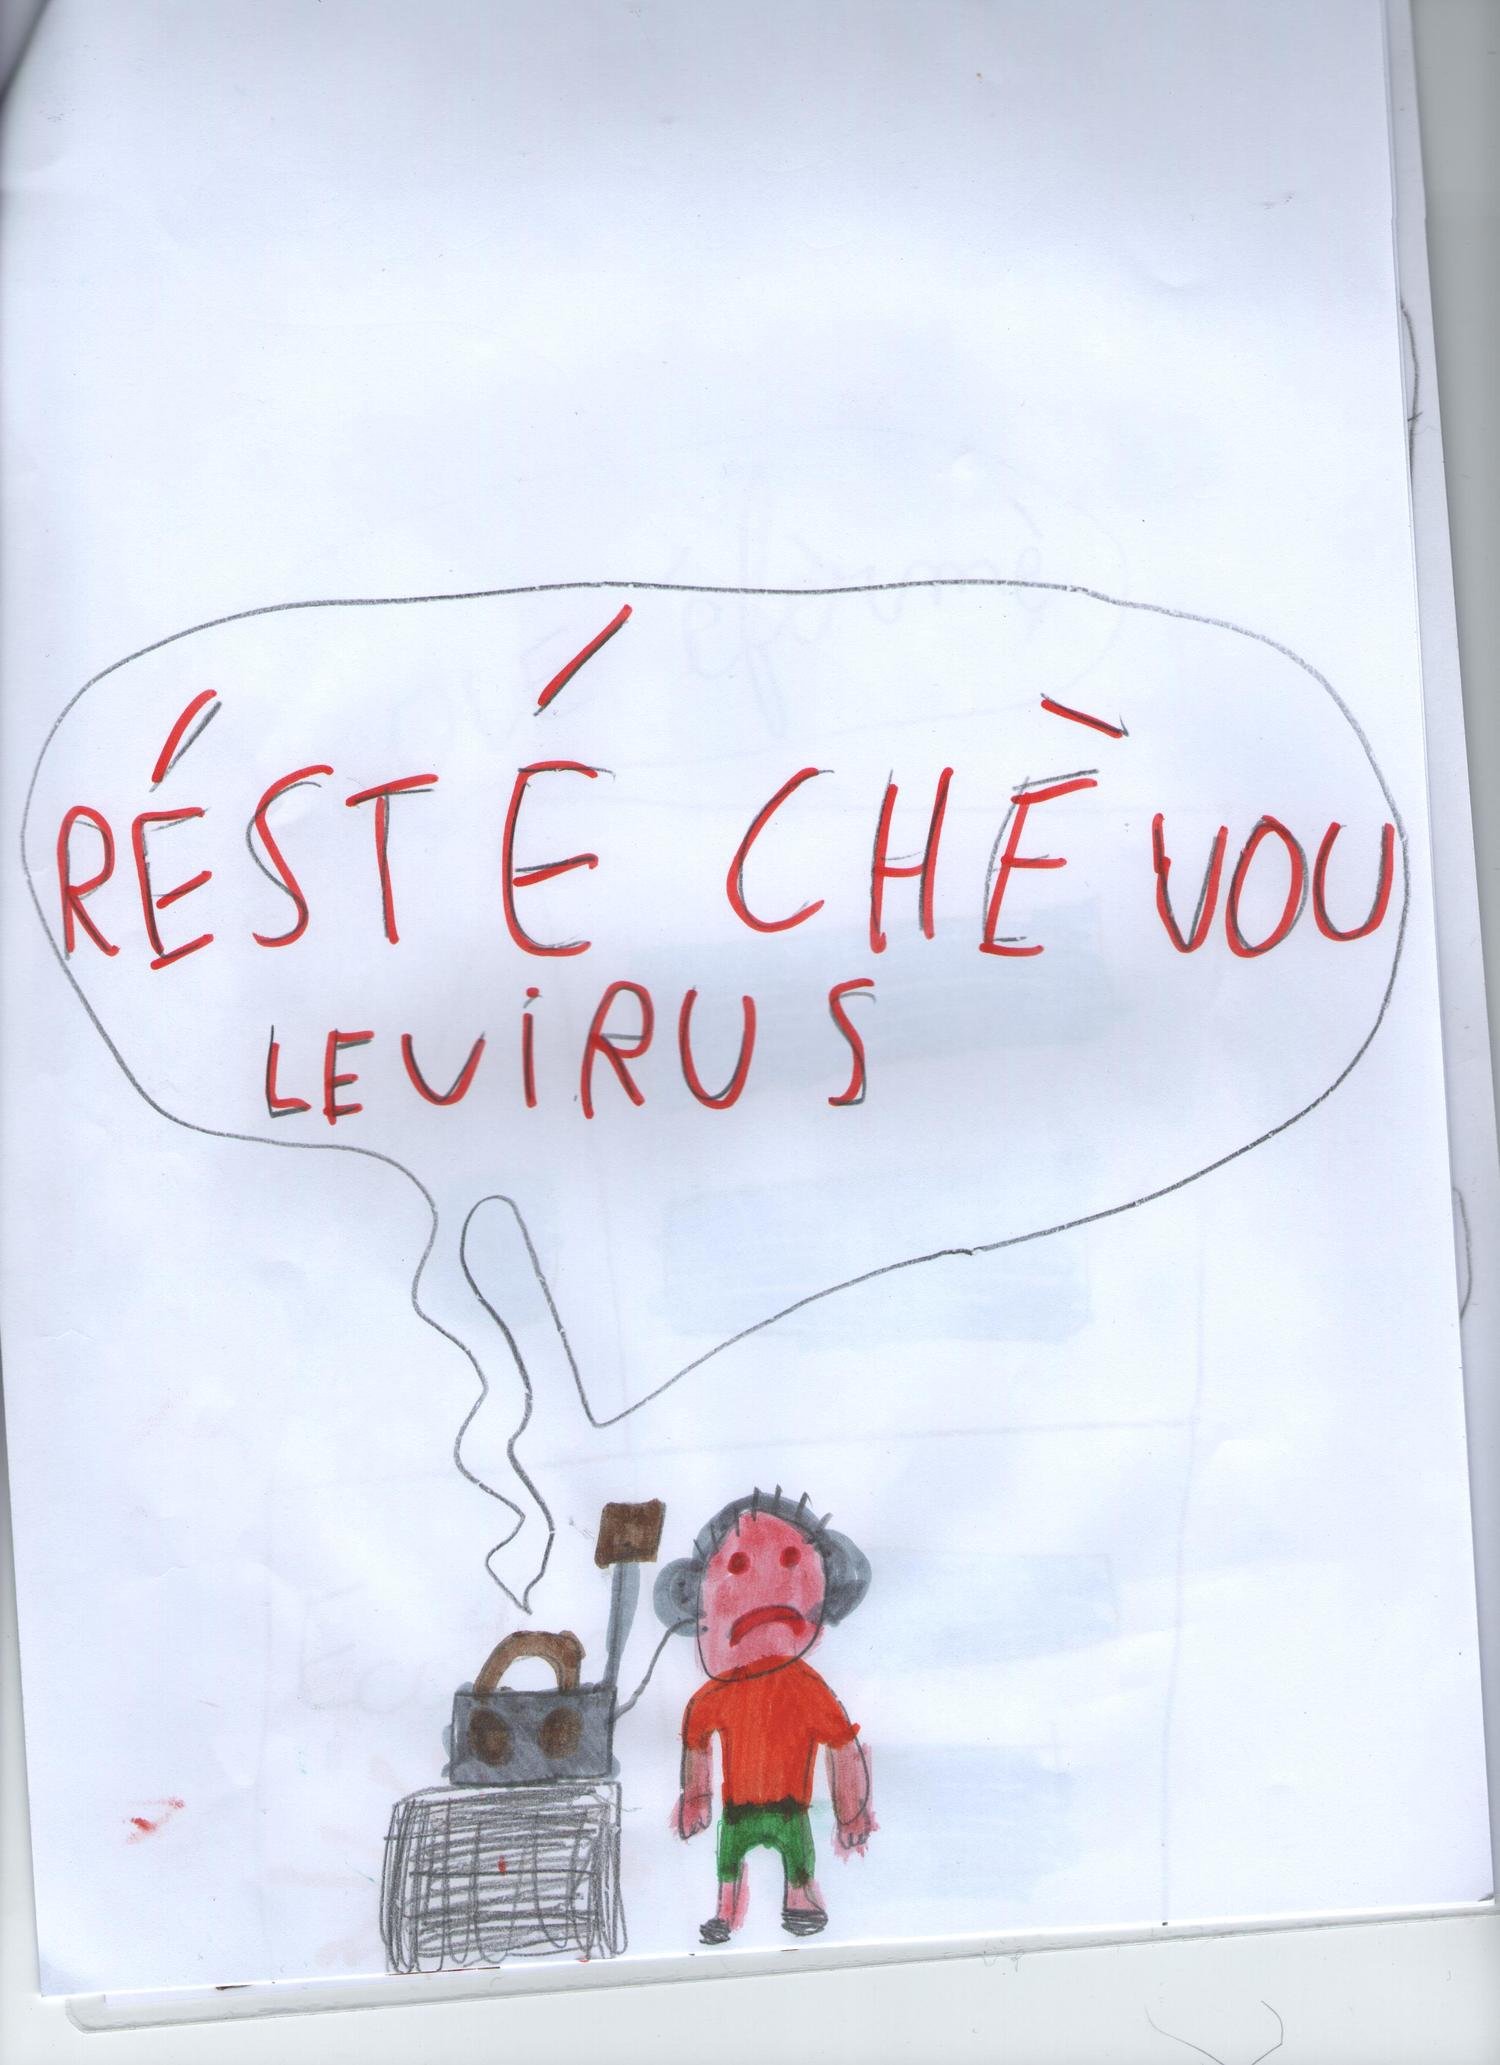 RÉSTÉ CHÈ VOU
LE ViRUS